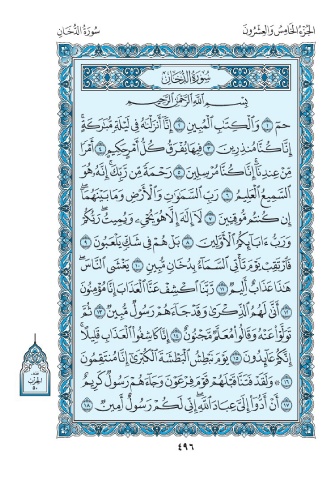 الجزء الخامس والعشرون
سورة الدخان
سُورَةُ الدُّخَانِ
بِسْمِ اللَّهِ الرَّحْمَٰنِ الرَّحِيمِ
حمٓ ١ وَالْكِتَٰبِ الْمُبِينِ ٢ إِنَّآ أَنزَلْنَٰهُ فِى لَيْلَةٍ مُّبَٰرَكَةٍ ۚ
إِنَّا كُنَّا مُنذِرِينَ ٣ فِيهَا يُفْرَقُ كُلُّ أَمْرٍ حَكِيمٍ ٤ أَمْرًا
مِّنْ عِندِنَآ ۚ إِنَّا كُنَّا مُرْسِلِينَ ٥ رَحْمَةً مِّن رَّبِّكَ ۚ إِنَّهُۥ هُوَ
السَّمِيعُ الْعَلِيمُ ٦ رَبِّ السَّمَٰوَٰتِ وَالْأَرْضِ وَمَا بَيْنَهُمَآ ۖ
إِن كُنتُم مُّوقِنِينَ ٧ لَآ إِلَٰهَ إِلَّا هُوَ يُحْىِۦ وَيُمِيتُ ۖ رَبُّكُمْ
وَرَبُّ ءَابَآئِكُمُ الْأَوَّلِينَ ٨ بَلْ هُمْ فِى شَكٍّ يَلْعَبُونَ ٩
فَارْتَقِبْ يَوْمَ تَأْتِى السَّمَآءُ بِدُخَانٍ مُّبِينٍ ١٠ يَغْشَى النَّاسَ ۖ
هَٰذَا عَذَابٌ أَلِيمٌ ١١ رَّبَّنَا اكْشِفْ عَنَّا الْعَذَابَ إِنَّا مُؤْمِنُونَ
١٢ أَنَّىٰ لَهُمُ الذِّكْرَىٰ وَقَدْ جَآءَهُمْ رَسُولٌ مُّبِينٌ ١٣ ثُمَّ
تَوَلَّوْا۟ عَنْهُ وَقَالُوا۟ مُعَلَّمٌ مَّجْنُونٌ ١٤ إِنَّا كَاشِفُوا۟ الْعَذَابِ قَلِيلًا ۚ
إِنَّكُمْ عَآئِدُونَ ١٥ يَوْمَ نَبْطِشُ الْبَطْشَةَ الْكُبْرَىٰٓ إِنَّا مُنتَقِمُونَ
١٦ ۞ وَلَقَدْ فَتَنَّا قَبْلَهُمْ قَوْمَ فِرْعَوْنَ وَجَآءَهُمْ رَسُولٌ كَرِيمٌ
١٧ أَنْ أَدُّوٓا۟ إِلَىَّ عِبَادَ اللَّهِ ۖ إِنِّى لَكُمْ رَسُولٌ أَمِينٌ ١٨
الحزب
٥٠
٤٩٦